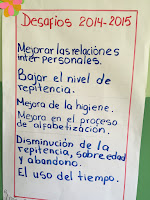 Desafíos 2014-2015
Mejorar las relaciones
interpersonales.
Bajar el nivel de
repitencia.
Mejora de la higiene.
Mejora en el proceso
de alfabetización.
Disminución de la
repitencia, sobre edad
y abandono.
El uso del tiempo.